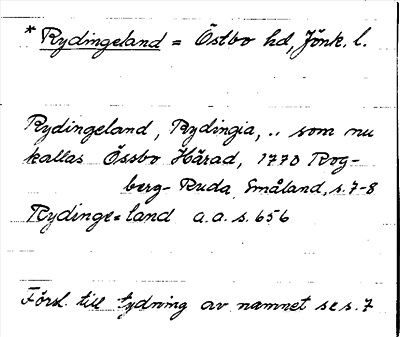 * Rydingeland = Östbo hd, Jönk. l.
Rydingeland, Rydingia, .. som nu
kallas Össbo Härad, 1770 Rog-
berg-Ruda, Småland, s. 7-8
Rydinge=land a.a.s. 656
Försl. till tydning av namnet se s. 7